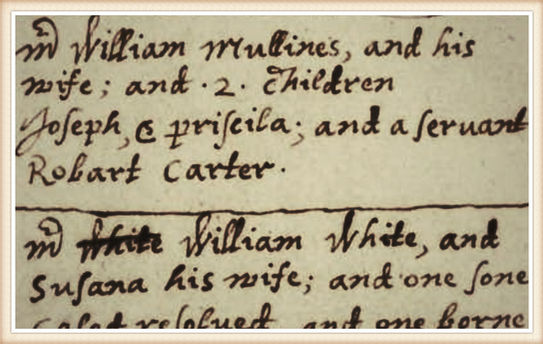 mr William Mullines, and his
wife; and ·2· Children
Joseph, & priscila; and a servant
Robart Carter·
mr White William White, and
Susana his wife; and one sone
resolved, and one borne